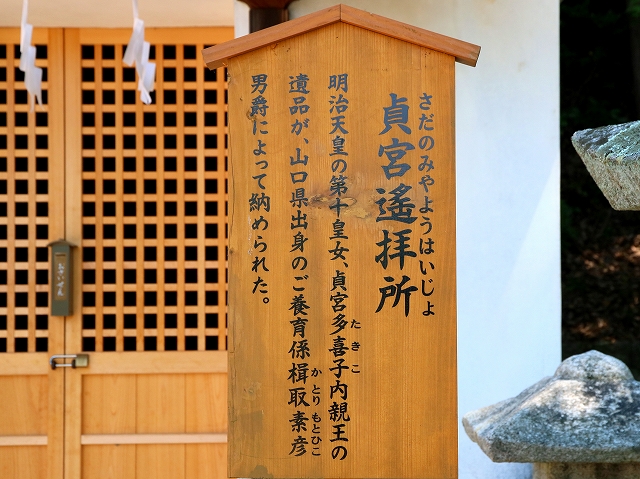 さだのみやようはいじょ
貞宮遙拝所
明治天皇の第十皇女、貞宮多喜子内親王の
たきこ
遺品が、山口県出身のご養育係楫取素彦
かとりもとひこ
男爵によって納められた。
おさいせん